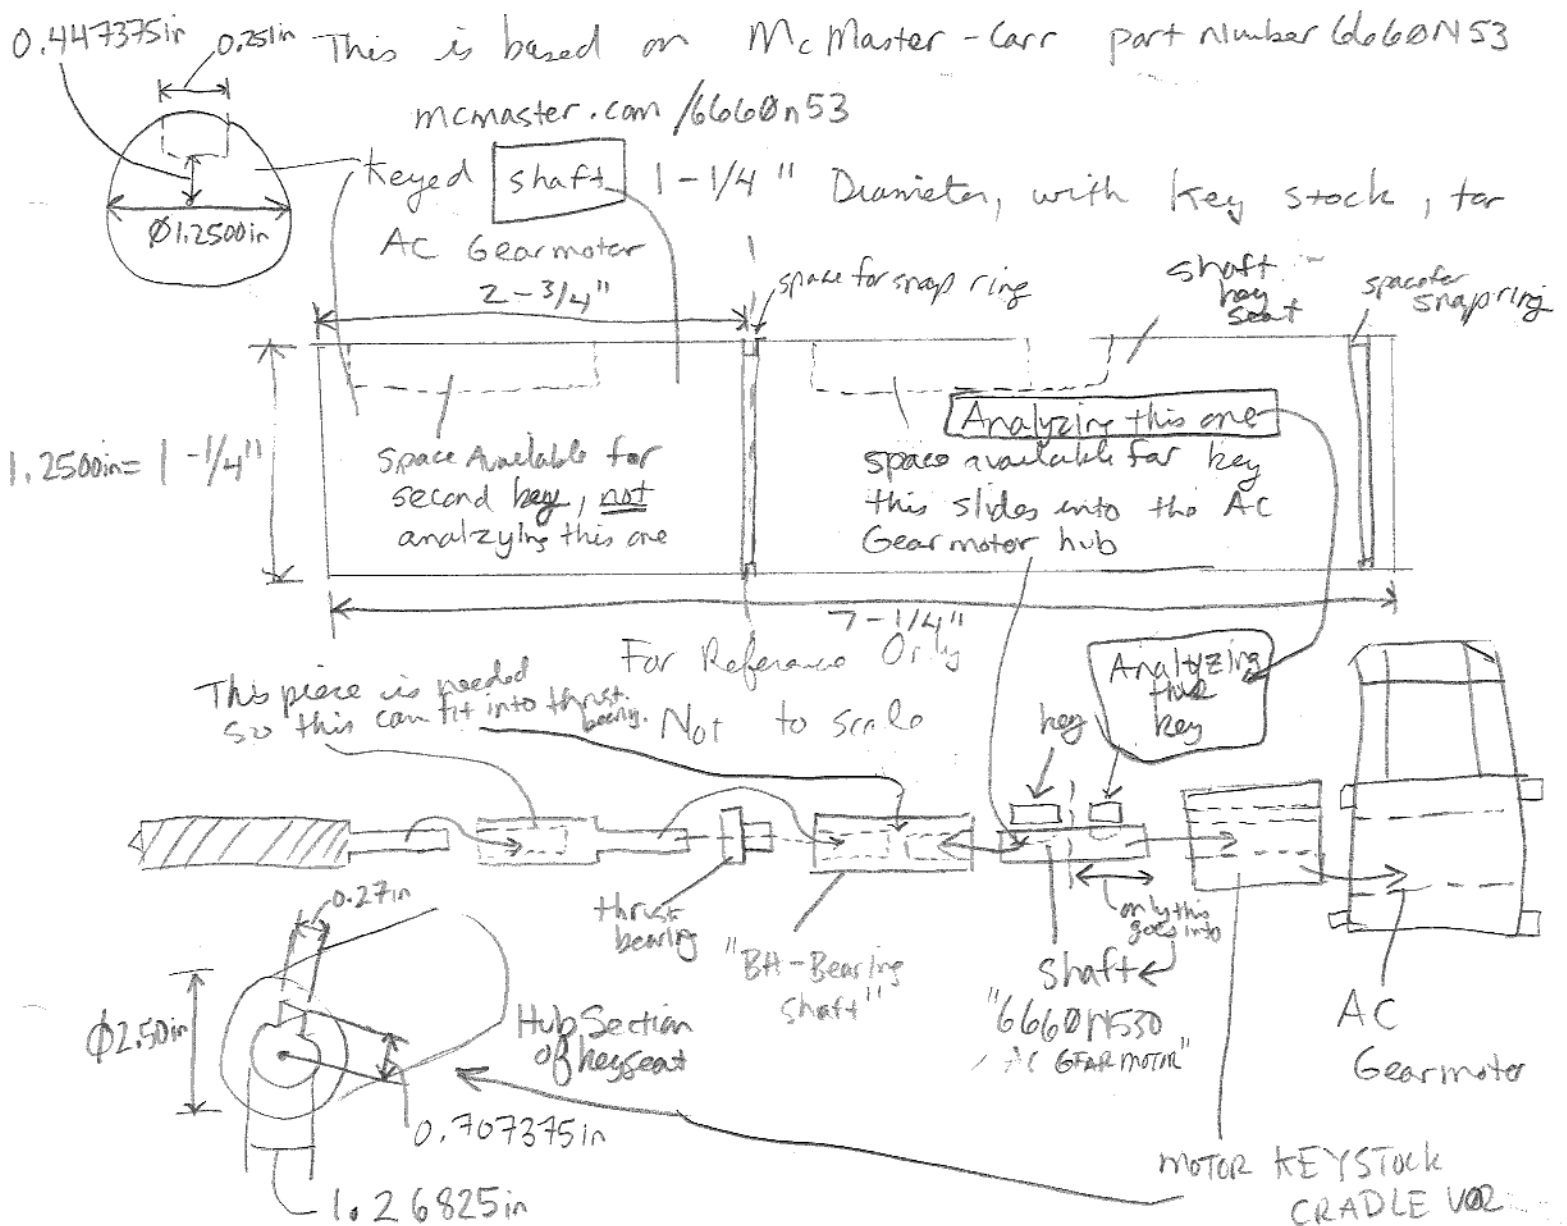 0.447375in
0.251in
This is based on McMaster-Carr part number 6660N53
mcmaster.com/6660n53
keyed shaft 1-1/4" Diameter, with key stock, for
AC Gearmotor
Ø1.2500in
2-3/4"
space for snap ring
shaft
key
seat
space for
snap ring
1.2500in= 1-1/4"
space Available for
second key, not
analzying this one
Analyzing this one
space available for key
this slides into the AC
Gearmotor hub
7-1/4"
For Reference Only
Not to scale
This piece is needed
so this can fit into thrust
bearing.
key
Analyzing
this
key
thrust
bearing
"BH-Bearing
shaft"
only this
goes into
shaft
"6660N530
AC GEARMOTOR"
AC
Gearmotor
0.27in
Ø2.50in
Hub Section
of keyseat
0.707375in
1.26825in
MOTOR KEYSTOCK
CRADLE V02